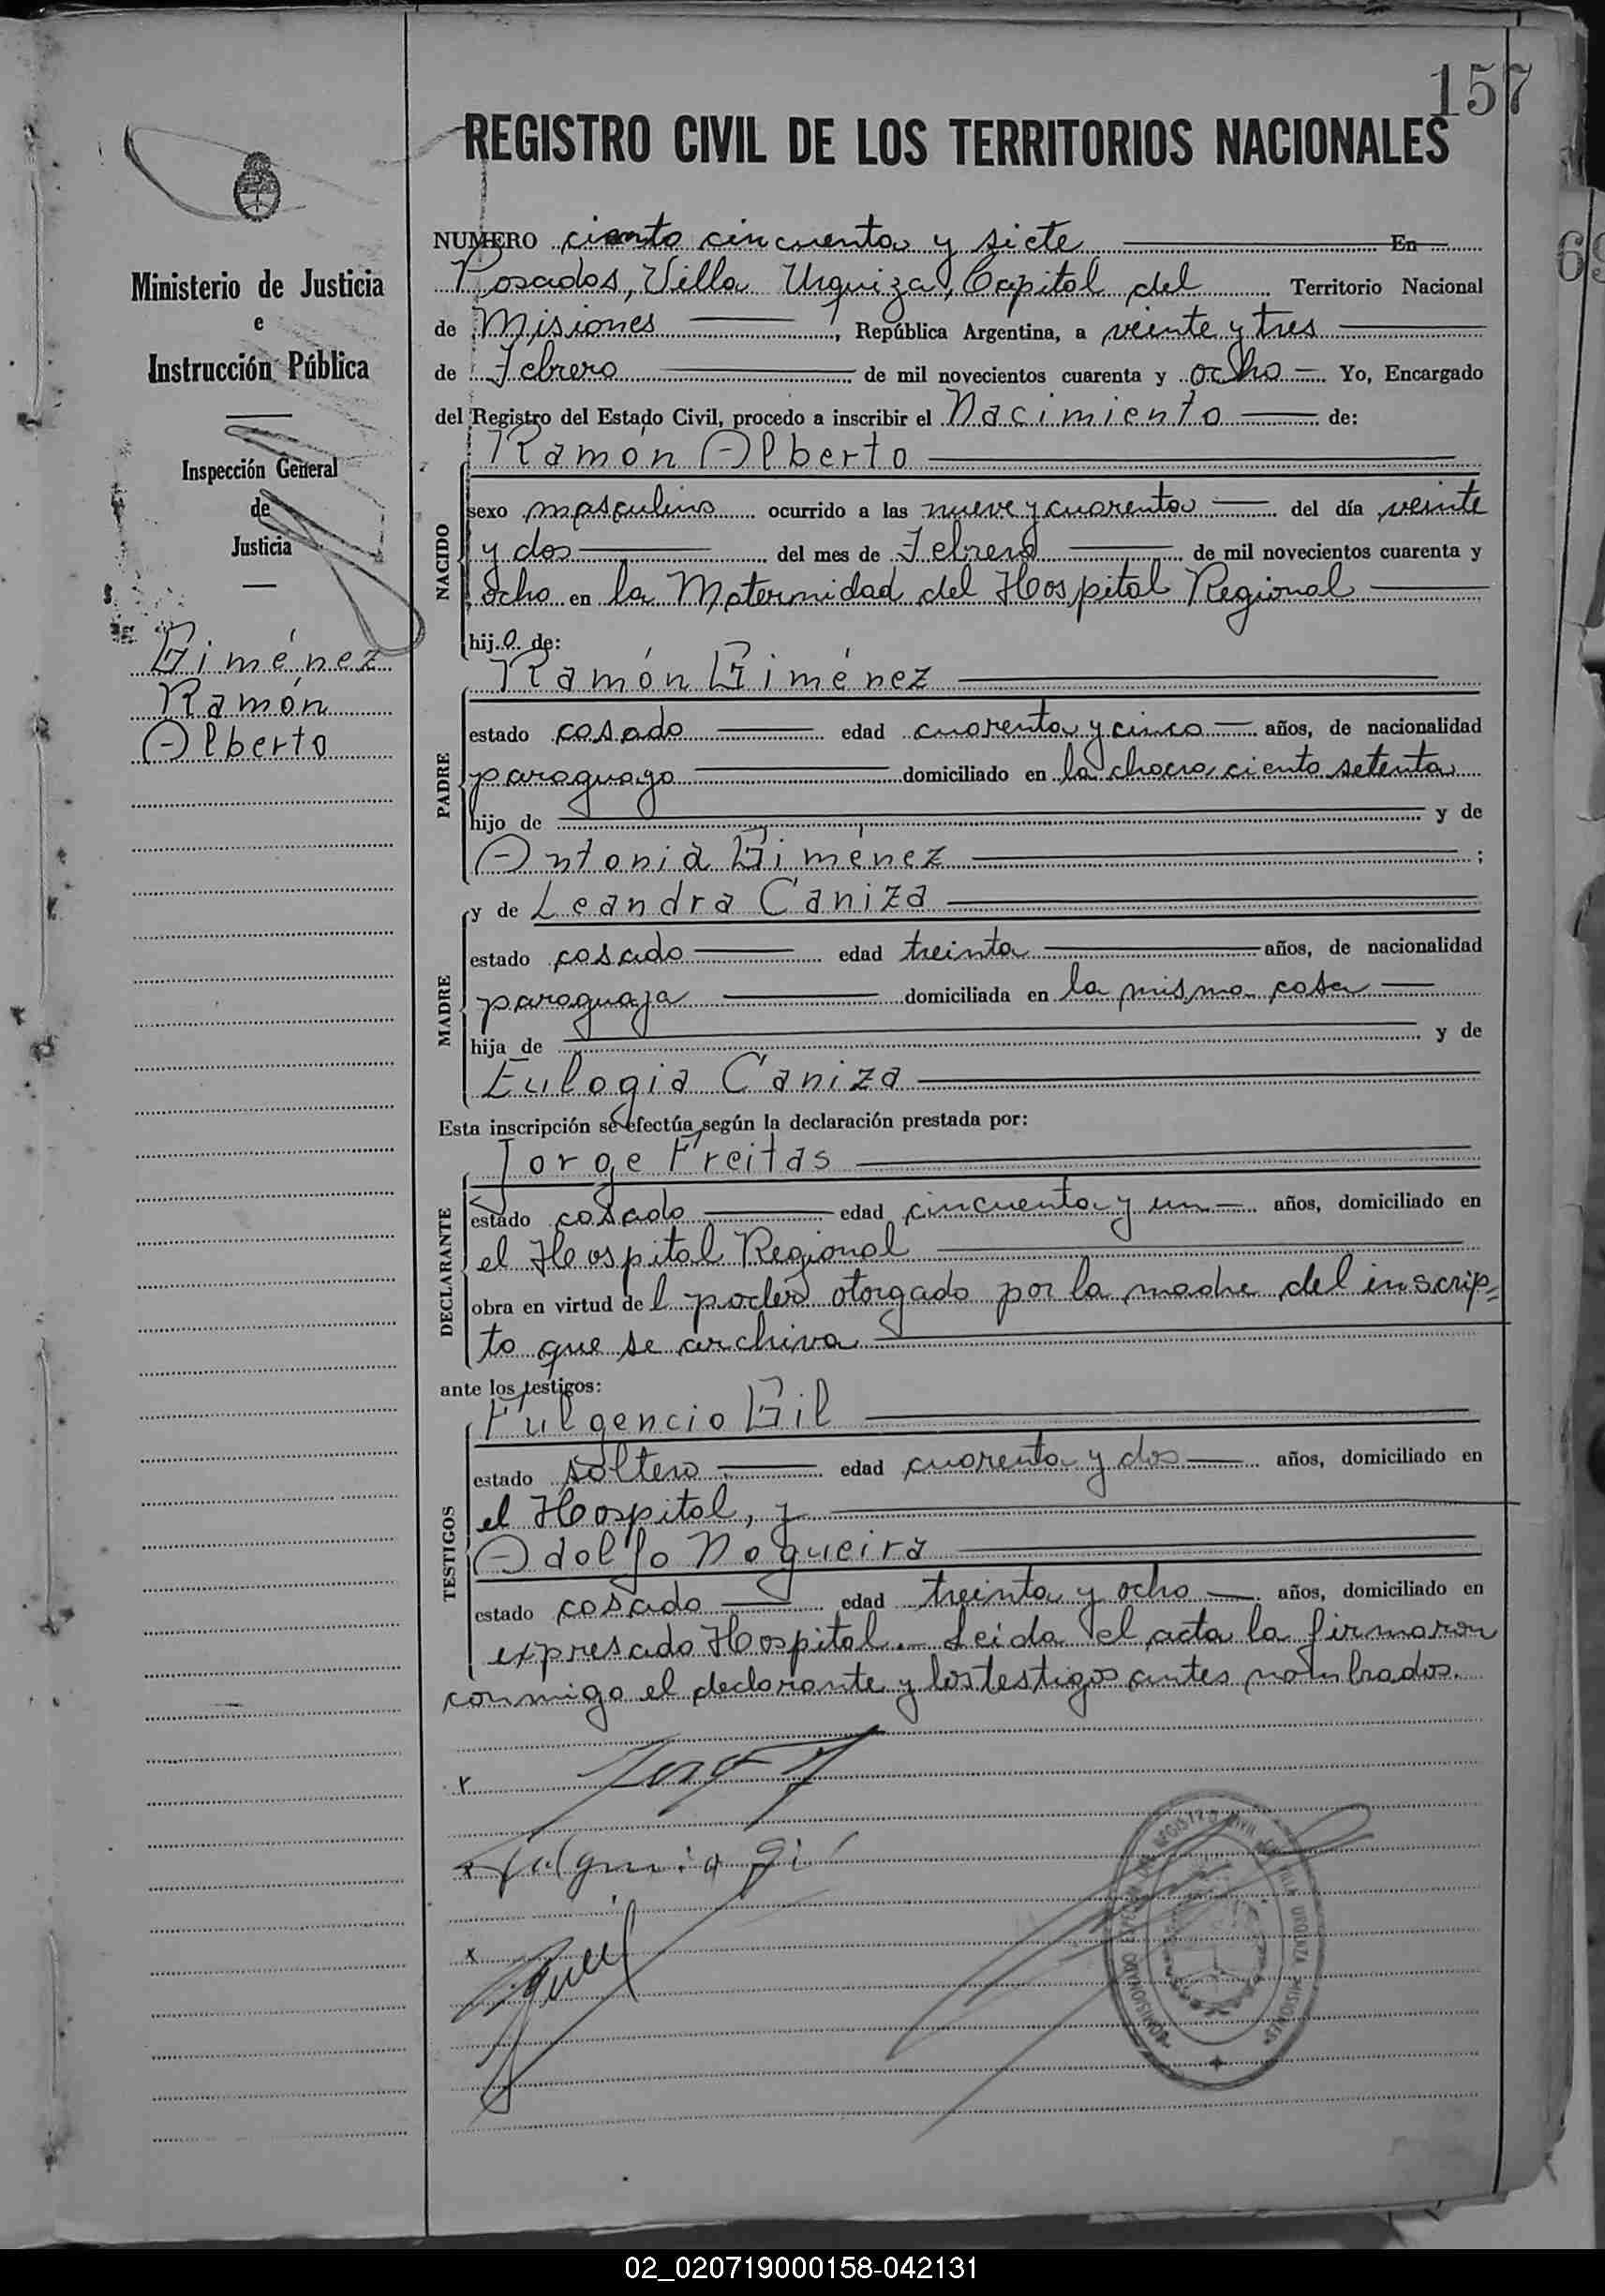 157
REGISTRO CIVIL DE LOS TERRITORIOS NACIONALES
Ministerio de Justicia
e
Instrucción Pública
Inspección General
de
Justicia
Giménez
Ramón
Alberto
NUMERO ciento cincuenta y siete En
Posadas, Villa Urquiza, Capital del Territorio Nacional
de Misiones, República Argentina, a veinte y tres
de Febrero de mil novecientos cuarenta y ocho Yo, Encargado
del Registro del Estado Civil, procedo a inscribir el Nacimiento de:
NACIDO
Ramón Alberto
sexo masculino ocurrido a las nueve y cuarenta del día veinte
y dos del mes de Febrero de mil novecientos cuarenta y
ocho en la Maternidad del Hospital Regional
hijo de:
PADRE
Ramón Giménez
estado casado edad cuarenta y cinco años, de nacionalidad
paraguayo domiciliado en la chacra ciento setenta
hijo de y de
Antonia Giménez ;
MADRE
y de Leandra Caniza
estado casada edad treinta años, de nacionalidad
paraguaya domiciliada en la misma casa
hija de y de
Eulogia Caniza
Esta inscripción se efectúa según la declaración prestada por:
DECLARANTE
Jorge Freitas
estado casado edad cincuenta y un años, domiciliado en
el Hospital Regional
obra en virtud del poder otorgado por la madre del inscrip=
to que se archiva
ante los testigos:
TESTIGOS
Fulgencio Gil
estado soltero edad cuarenta y dos años, domiciliado en
el Hospital, y
Adolfo Nogueira
estado casado edad treinta y ocho años, domiciliado en
expresado Hospital. Leida el acta la firmaron
conmigo el declarante y los testigos antes nombrados.
x
x Fulgencio Gil
x
REGISTRO CIVIL VILLA URQUIZA MISIONES
69
02_020719000158-042131